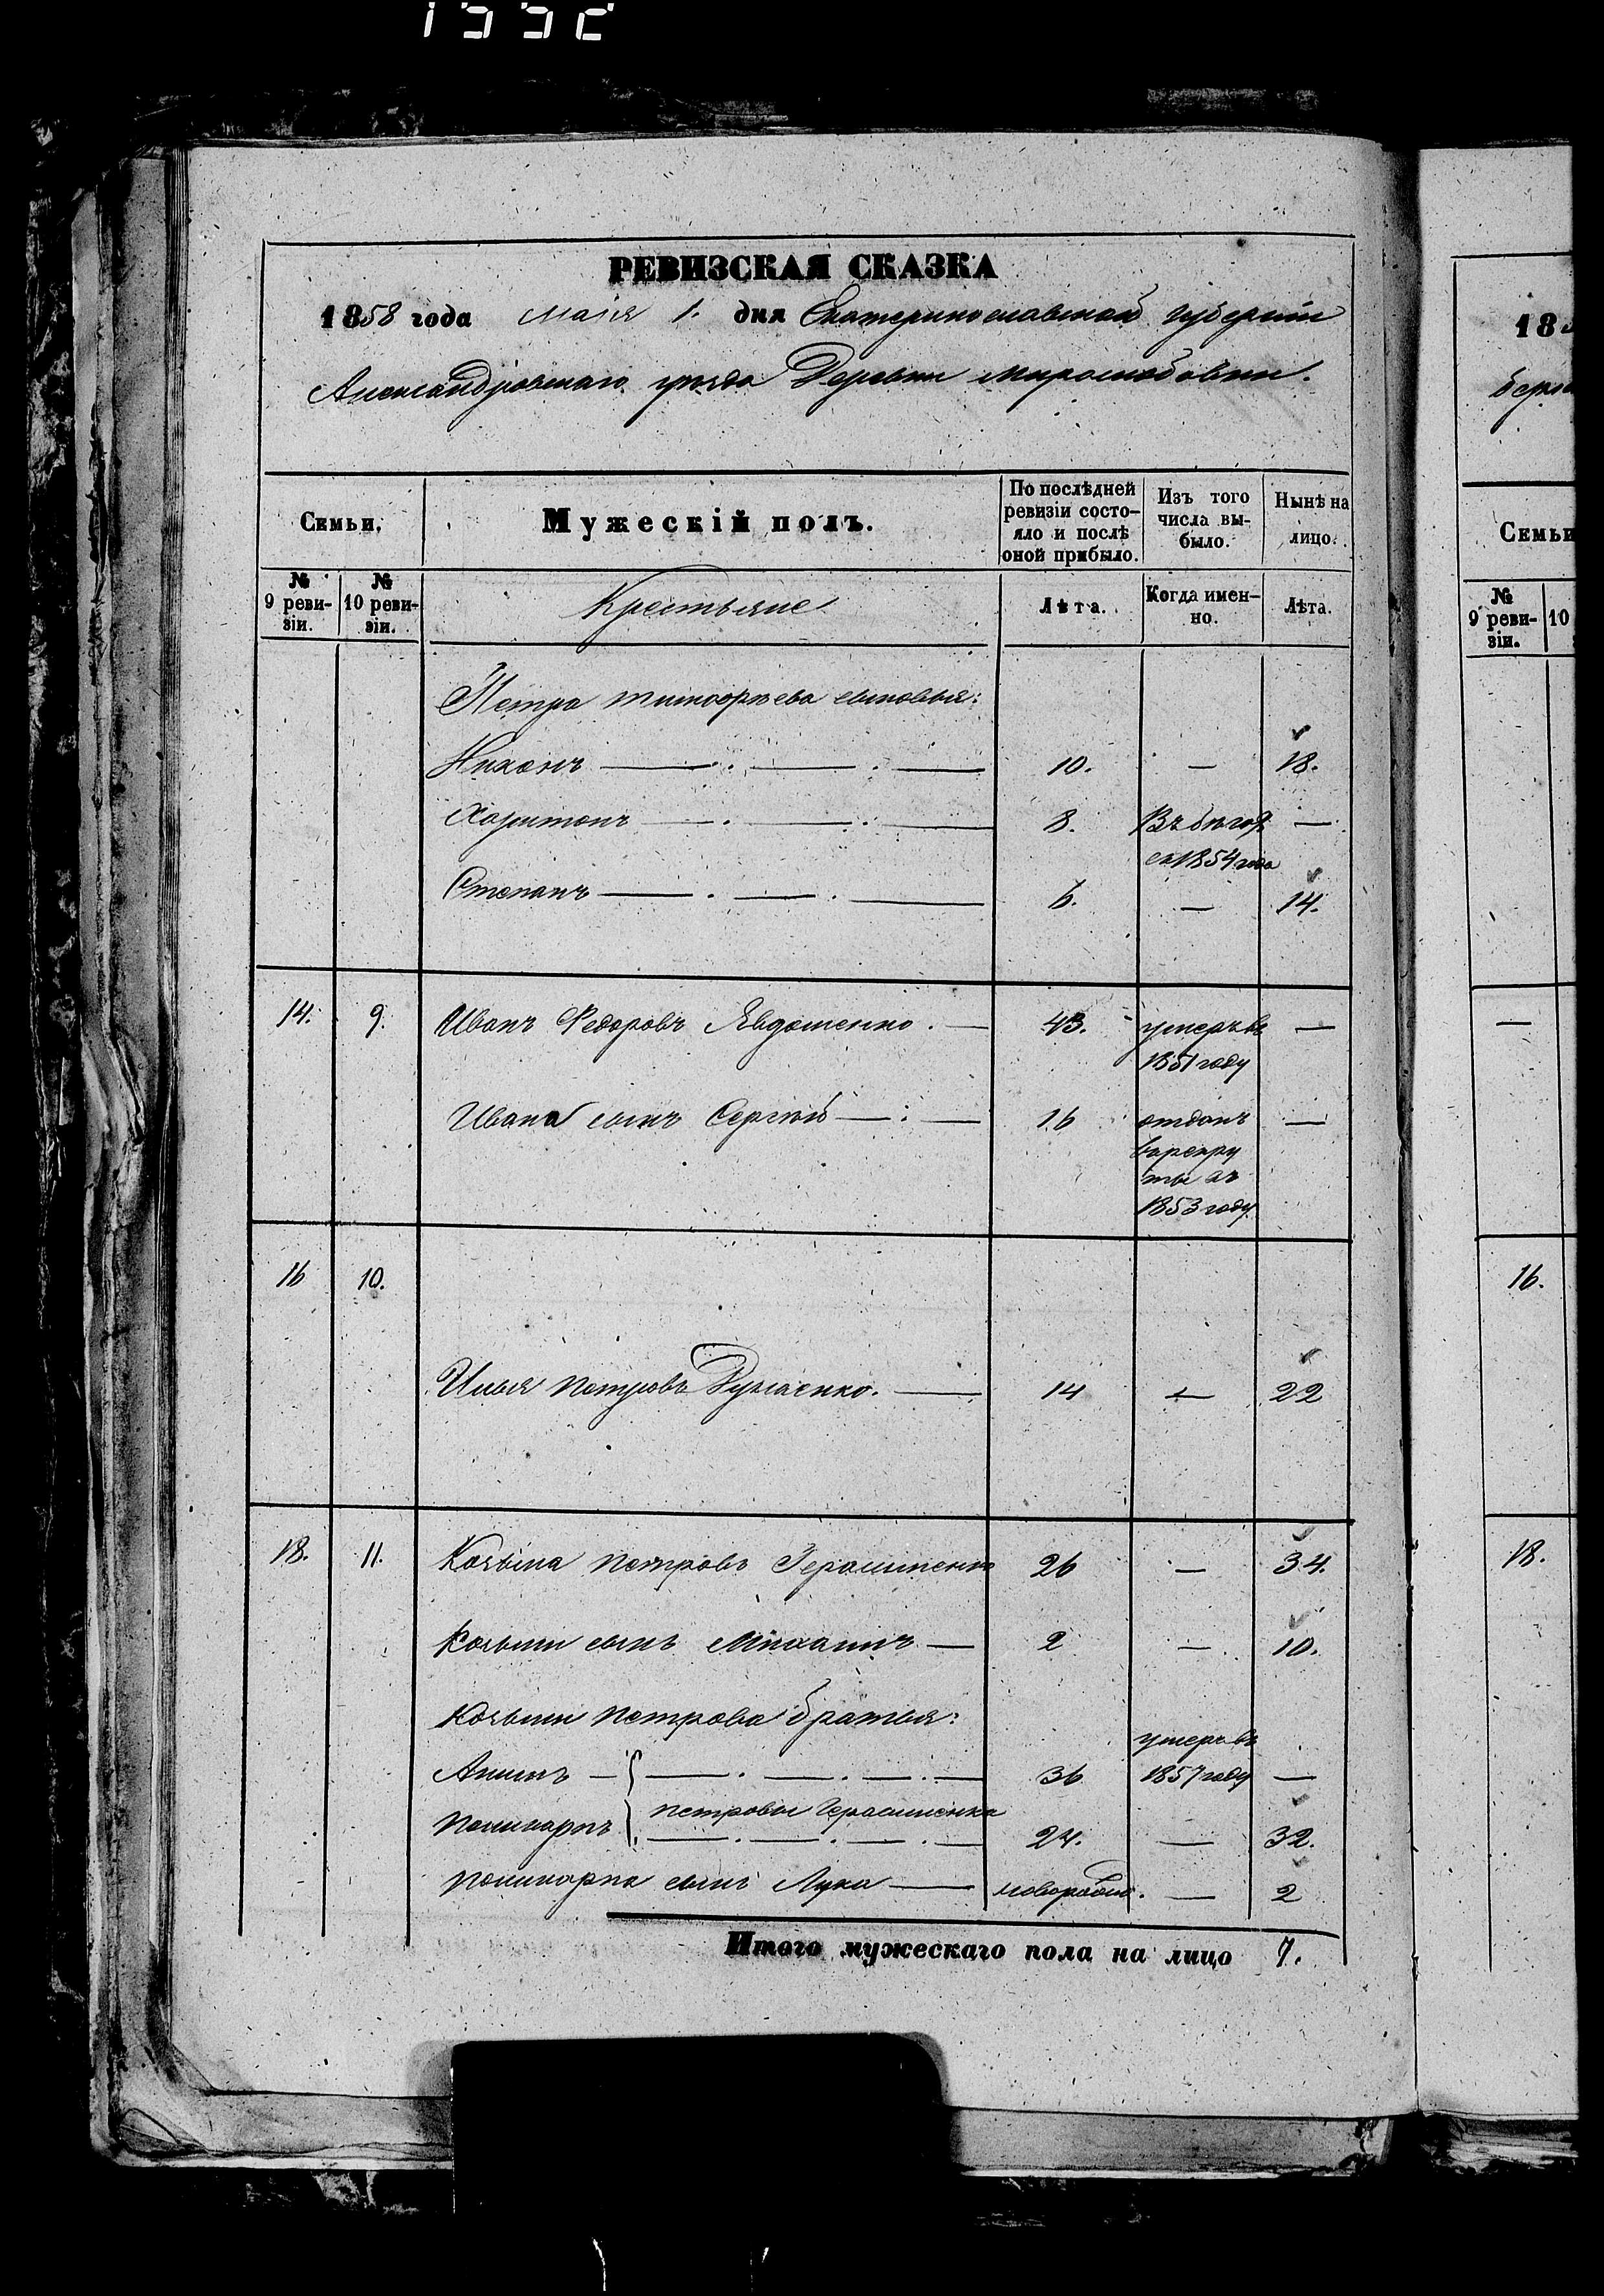 РЕВИЗСКАЯ СКАЗКА
1858 года маія 1. дня Екатеринославской губерніи
Александровскаго уѣзда Деревни Миролюбовки.
Семьи.
Мужескій полъ.
По послѣдней ревизіи состо-
яло и послѣ
оной прибыло.
Изъ того
числа вы-
было.
Нынѣ на
лицо.
№
9 реви-
зіи.
№
10 реви-
зіи.
Крестьяне
Лѣта.
Когда имен-
но.
Лѣта.
Петра Тимофѣева сыновья:
Никонъ — . — . — 10. — 18.
Харитонъ — . — . — 8. Въ бѣгахъ —
съ 1854 года
Степанъ — . — . — 6. — 14.
14. 9. Иванъ Федоровъ Явдошенко . — 43. умеръ въ —
1851 году
Ивана сынъ Сергѣй — . — 16 отданъ —
въ рекру
ты въ
1853 году.
16 10.
Илья Петровъ — 14 — 22
18. 11. Козьма Петровъ Герасименко 26 — 34.
Козьмы сынъ Михаилъ — 2 — 10.
Козьмы Петрова братья:
умеръ въ
— . — . — . — 36 1857 году —
Поликарпъ Петровы Герасименки
— . — . — . — 24. — 32.
Поликарпа сынъ Лука — новорожд. — 2
Итого мужескаго пола на лицо 7.
183
Семьи
№
9 реви-
зіи.
10
—
16.
18.